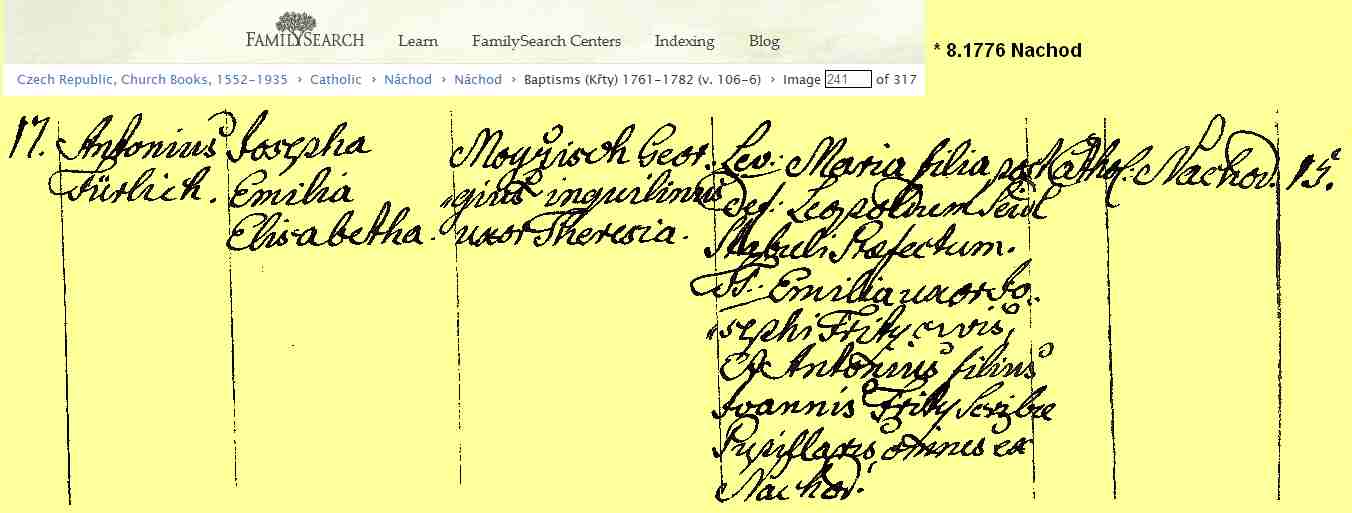 FAMILYSEARCH Learn FamilySearch Centers Indexing Blog
* 8.1776 Nachod
Czech Republic, Church Books, 1552-1935 › Catholic › Náchod › Náchod › Baptisms (Křty) 1761-1782 (v. 106-6) › Image 241 of 317
17.
Antonius
Türlich.
Josepha
Emilia
Elisabetha.
Moyzisch Geor.
gius inquilinus
uxor Theresia.
Lev: Maria filia post
def: Leopoldum Seidl
Stabuli Præfectum.
T: Emilia uxor Jo.
sephi Fritz civis,
Et Antonius filius
Joannis Fritz Scribæ
omnes ex
Nachod.
Cathol:
Nachod.
15.